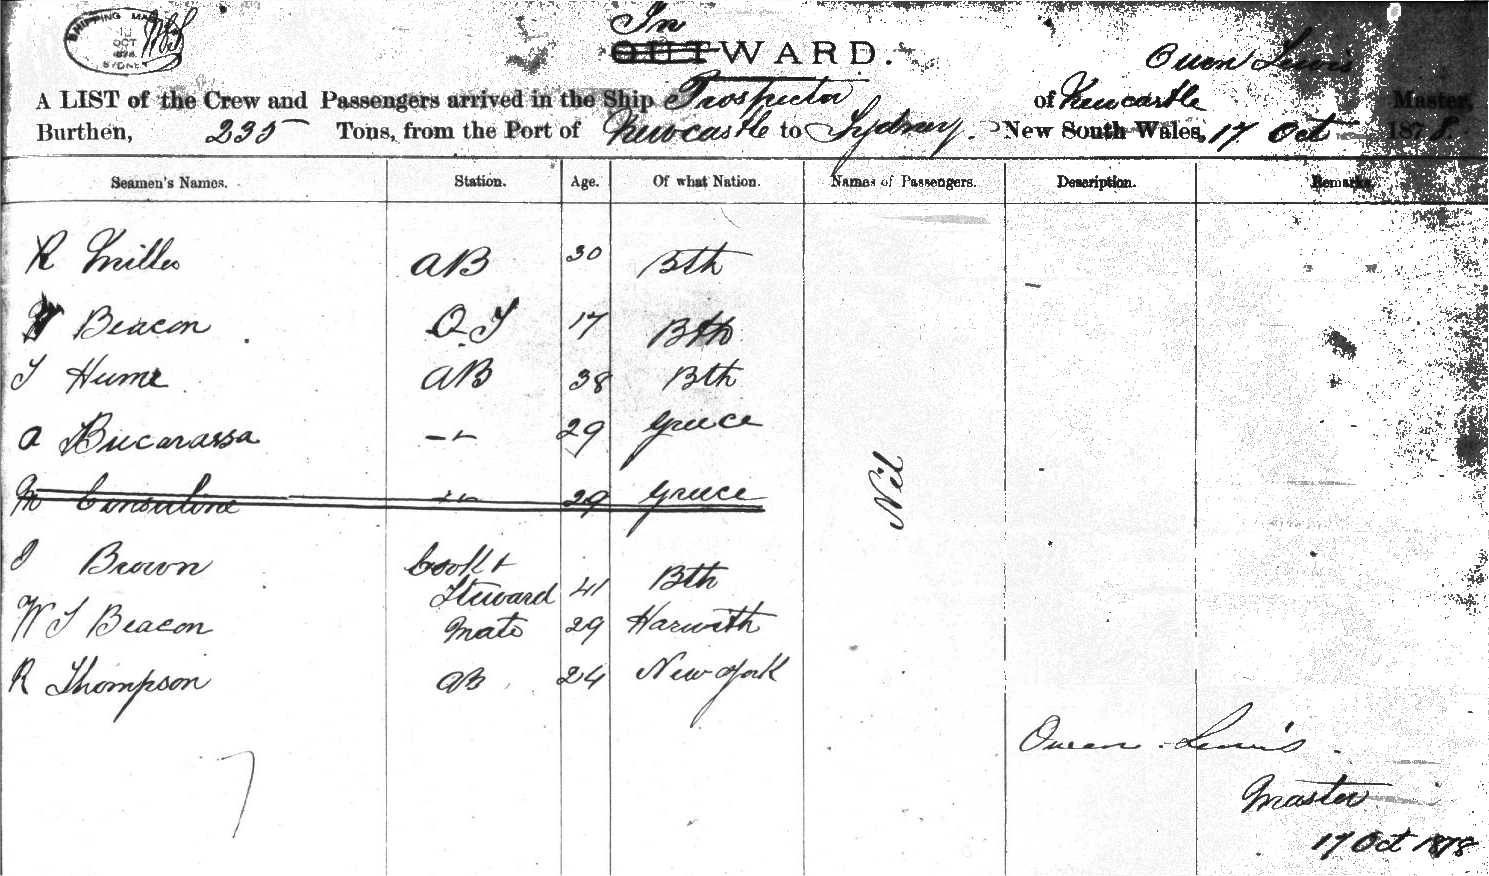 SHIPPING MA
OCT
1878
SYDNEY
In
OUTWARD.
Owen Lewis
A LIST of the Crew and Passengers arrived in the Ship Prospector of Newcastle Master,
Burthen, 235 Tons, from the Port of Newcastle to Sydney. New South Wales, 17 Oct 1878.
Seamen's Names. Station. Age. Of what Nation. Names of Passengers. Description. Remarks.
R Miller AB 30 Bth
Beacon O.S 17 Bth
T Hume AB 38 Bth
A Bucarassa 29 Greece
M 29 Greece
Nil
J Brown Cook &
Steward 41 Bth
W J Beacon Mate 29 Harwith
R Thompson AB 24 New York
Owen Lewis
7
Master
17 Oct 1878